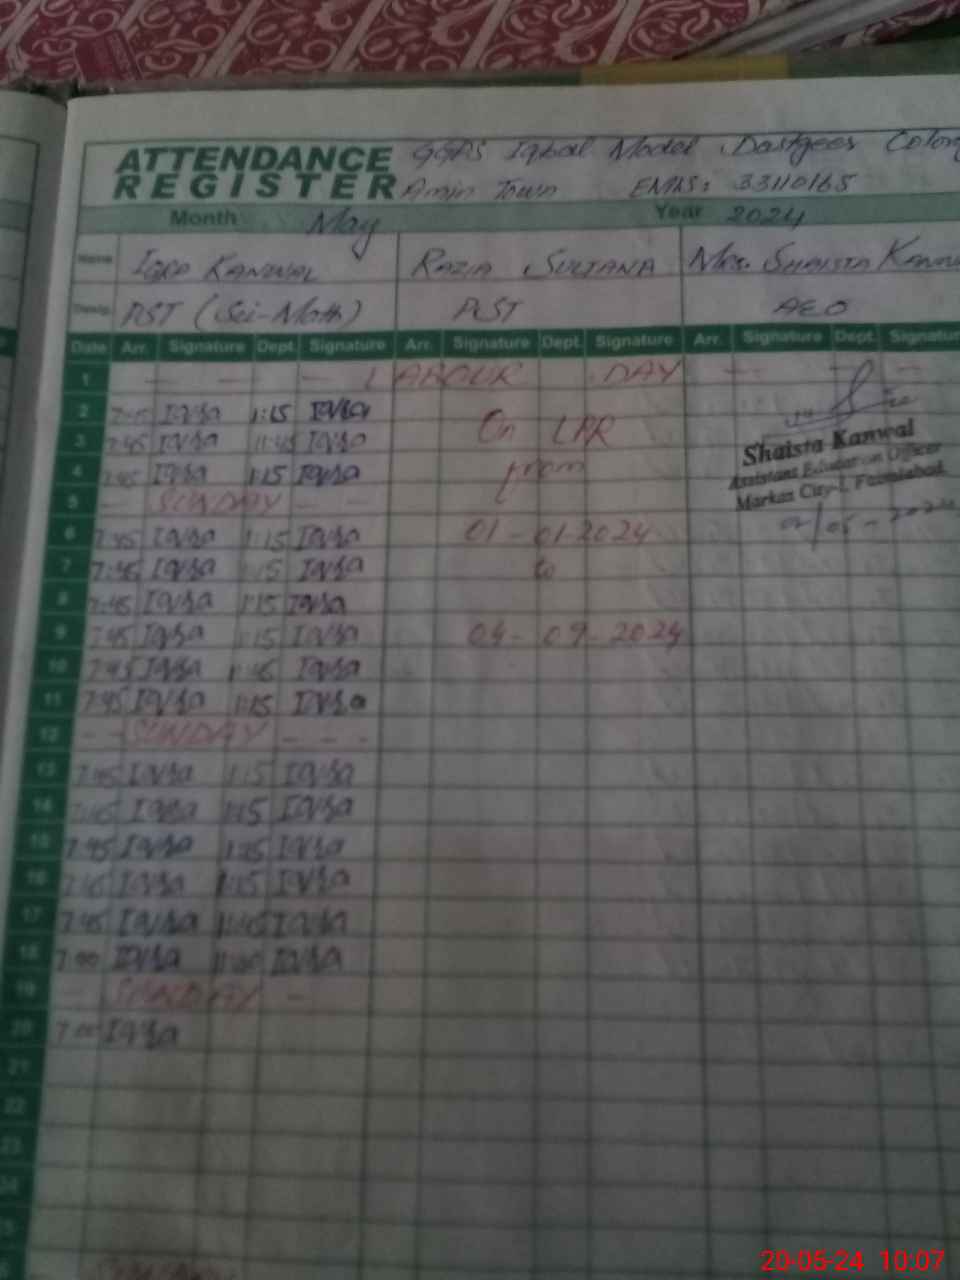 ATTENDANCE REGISTER
GGPS Iqbal Model Dastgeer Colony
Amin Town EMIS: 33110165
Month May Year 2024
Name IQRA KANWAL RAZIA SULTANA Mrs. SHAISTA
Desig. PST (Sci-Math) PST AEO
Date Arr. Signature Dept. Signature Arr. Signature Dept. Signature Arr. Signature Dept.
1 LABOUR DAY
2 Iqra 1:15 Iqra
3 7:45 Iqra 11:45 Iqra On LPR
4 Iqra 1:15 Iqra from
Shaista Kanwal
Assistant Education Officer
Markaz City-I, Faisalabad
5 SUNDAY
6 7:45 Iqra 1:15 Iqra 01-01-2024
7 7:45 Iqra 1:15 Iqra to
8 7:45 Iqra 1:15 Iqra
9 7:45 Iqra 1:15 Iqra 04-09-2024
10 7:45 Iqra Iqra
11 7:45 Iqra 1:15 Iqra
12 SUNDAY
13 7:45 Iqra 1:15 Iqra
14 7:45 Iqra 1:15 Iqra
15 7:45 Iqra Iqra
16 7:45 Iqra 1:15 Iqra
17 7:45 Iqra 11:45 Iqra
18 7:00 Iqra Iqra
19 SUNDAY
20 7:00 Iqra
21
22
23
24
25
20-05-24 10:07